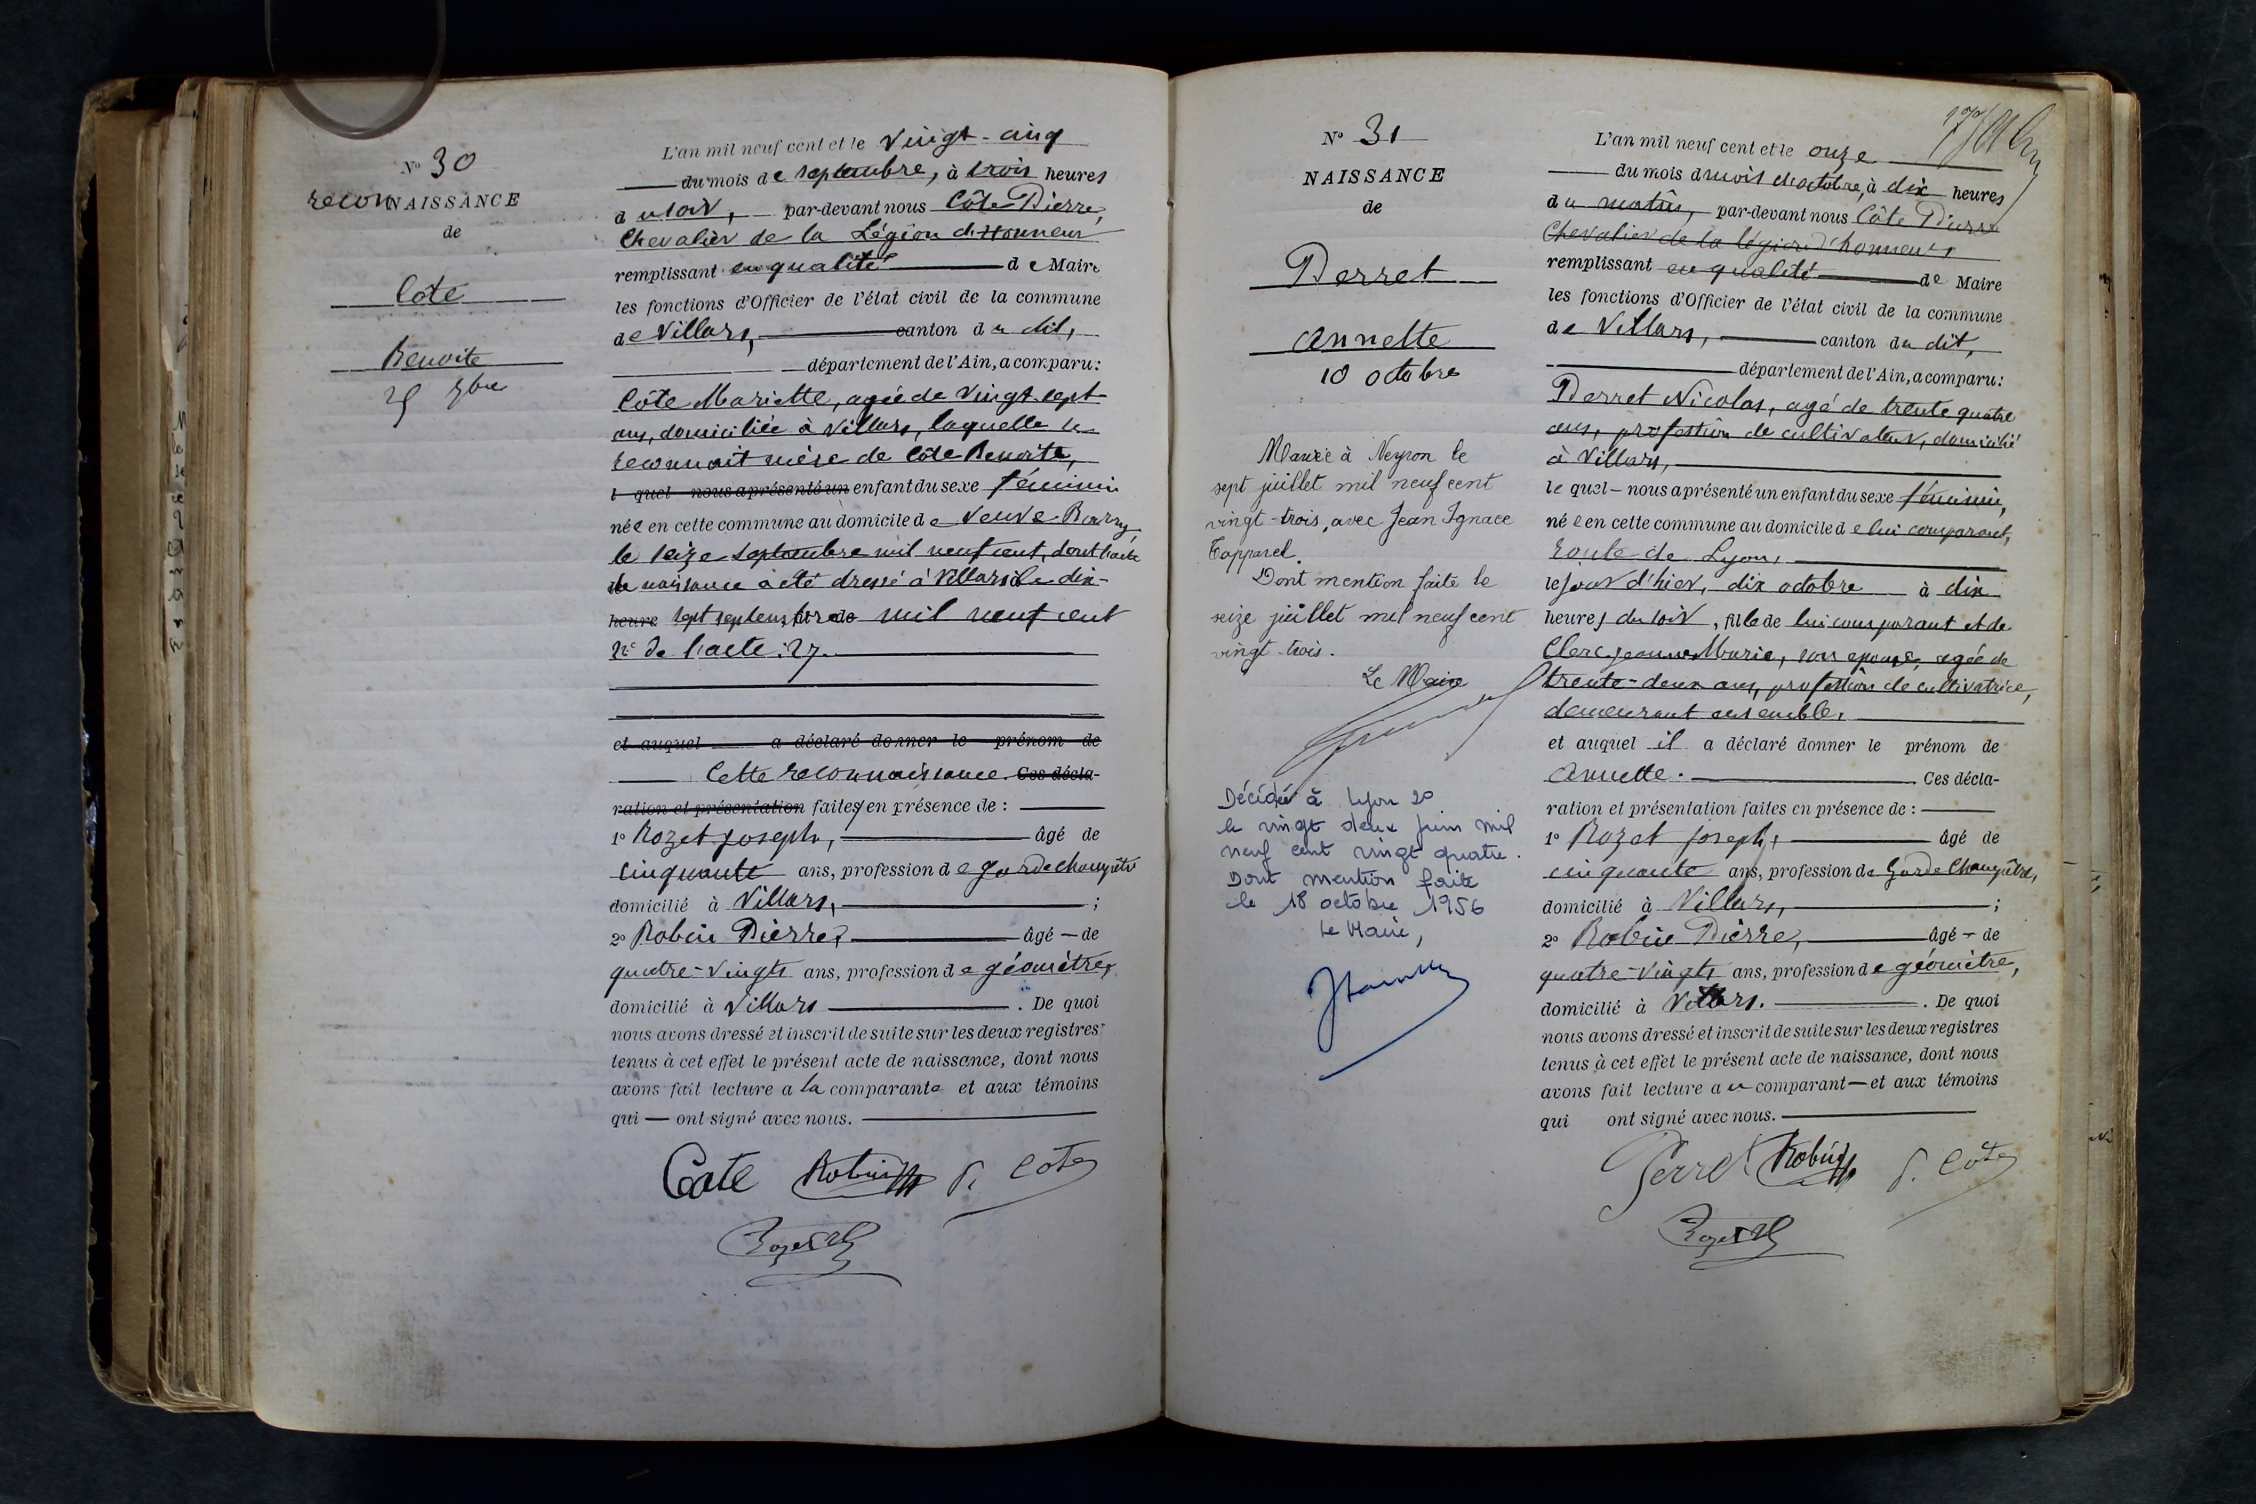 N° 30
reconNAISSANCE
de
Cote
Benoite
25 7bre
L'an mil neuf cent et le vingt-cinq
du mois de septembre, à trois heures
du soir, par-devant nous Côte Pierre,
Chevalier de la Légion d'Honneur
remplissant en qualité de Maire
les fonctions d'Officier de l'état civil de la commune
de Villars, canton du dit,
département de l'Ain, a comparu:
Côte Mariette, agée de vingt sept
ans, domiciliée à Villars, laquelle se
reconnait mère de Côte Benoite,
l quel nous a présenté un enfant du sexe féminin
née en cette commune au domicile de veuve
le seize septembre mil neuf cent, dont l'acte
de naissance a été dressé à Villars le dix-
heure sept septembre de mil neuf cent
N° de l'acte: 27.
et auquel a déclaré donner le prénom de
Cette reconnaissance. Ces décla-
ration et présentation faites en présence de :
1° Rozet Joseph, âgé de
cinquante ans, profession de garde champêtre
domicilié à Villars, ;
2° Robin Pierre, âgé de
quatre-vingts ans, profession de géomètre,
domicilié à Villars . De quoi
nous avons dressé et inscrit de suite sur les deux registres
tenus à cet effet le présent acte de naissance, dont nous
avons fait lecture a la comparante et aux témoins
qui — ont signé avec nous.
Cote Robin P. Côte
Rozet
N° 31
NAISSANCE
de
Perret
Annette
10 octobre
Mariée à Neyron le
sept juillet mil neuf cent
vingt-trois, avec Jean Ignace
Tapparel.
Dont mention faite le
seize juillet mil neuf cent
vingt trois.
Le Maire
Décédée à Lyon 2°
le vingt deux juin mil
neuf cent vingt quatre.
Dont mention faite
le 18 octobre 1956
Le Maire,
L'an mil neuf cent et le onze
du mois du mois d'octobre, à dix heures
du matin, par-devant nous Côte Pierre
Chevalier de la légion d'honneur,
remplissant en qualité de Maire
les fonctions d'Officier de l'état civil de la commune
de Villars, canton du dit,
département de l'Ain, a comparu:
Perret Nicolas, agé de trente quatre
ans, profession de cultivateur, domicilié
à Villars,
le quel — nous a présenté un enfant du sexe féminin,
née en cette commune au domicile de lui comparant,
route de Lyon,
le jour d'hier, dix octobre à dix
heures du soir, fille de lui comparant et de
Clerc Jeanne Marie, son épouse, agée de
trente-deux ans, profession de cultivatrice,
demeurant ensemble,
et auquel il a déclaré donner le prénom de
Annette. Ces décla-
ration et présentation faites en présence de :
1° Rozet Joseph, âgé de
cinquante ans, profession de Garde Champêtre,
domicilié à Villars, ;
2° Robin Pierre, âgé — de
quatre-vingts ans, profession de géomètre,
domicilié à Villars. . De quoi
nous avons dressé et inscrit de suite sur les deux registres
tenus à cet effet le présent acte de naissance, dont nous
avons fait lecture au comparant — et aux témoins
qui ont signé avec nous.
Perret Robin P. Côte
Rozet